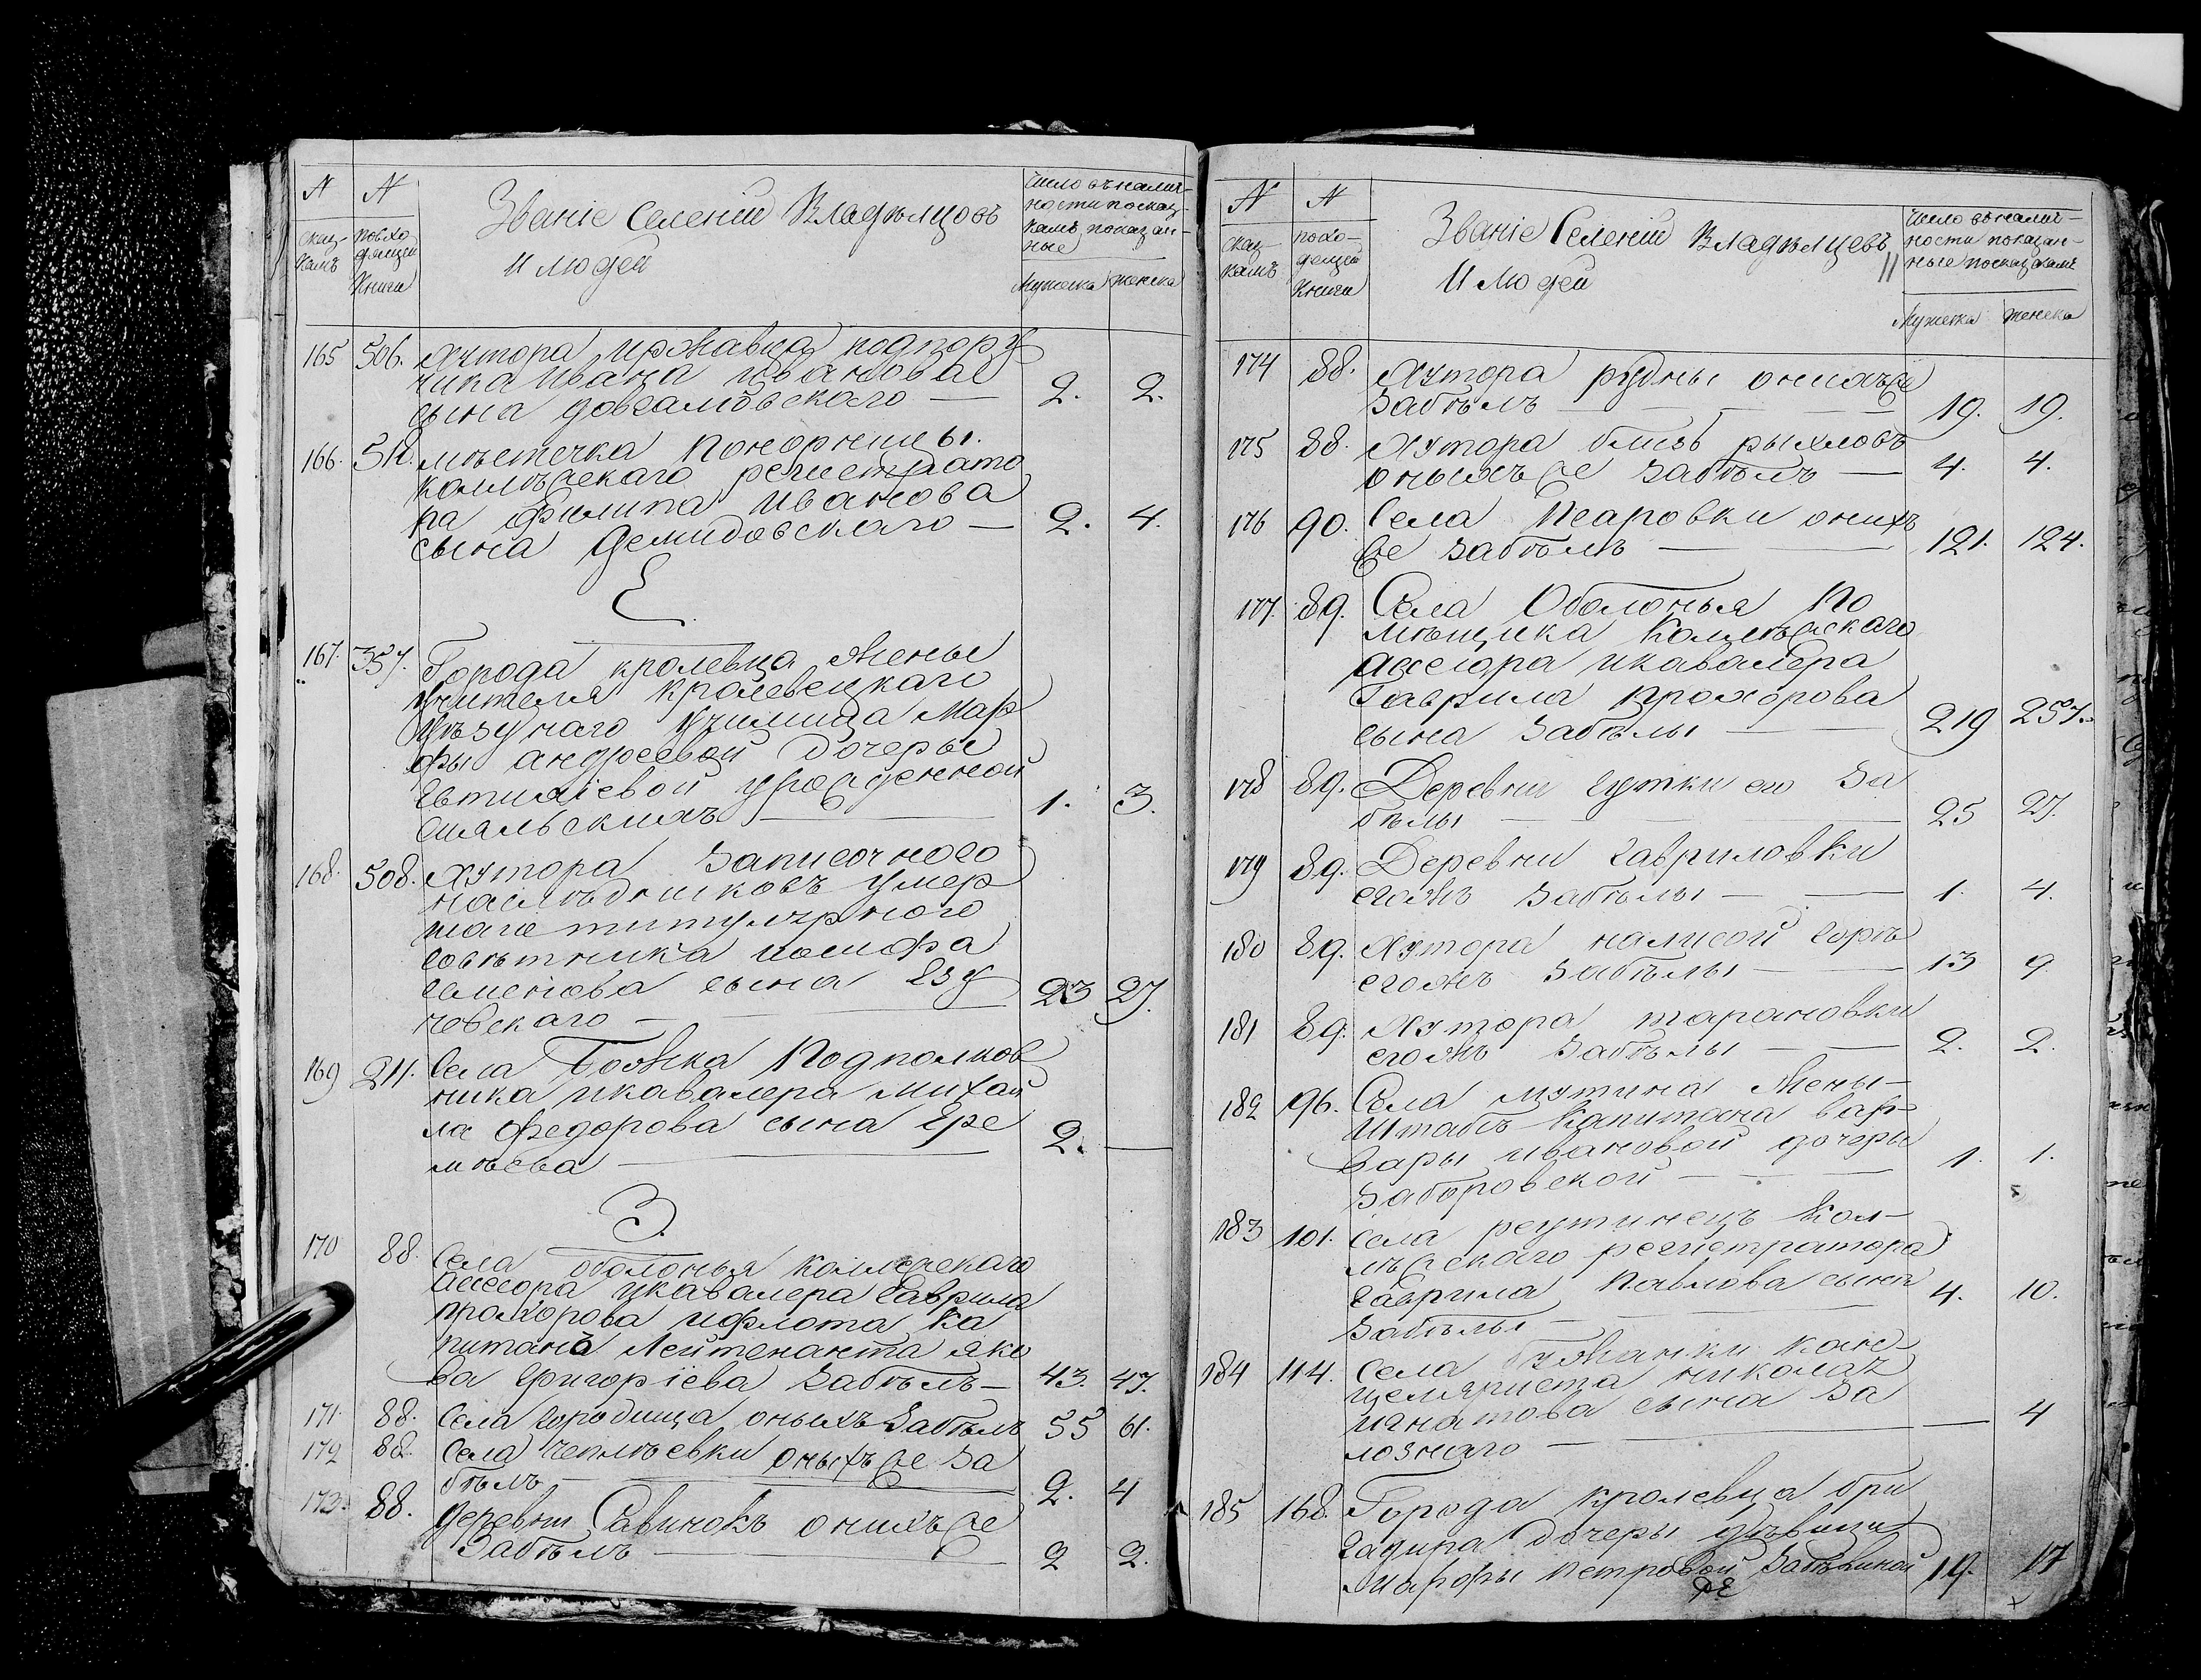 №
№
Званіе Селеній Владѣльцовъ
И людей
Число въ налич-
ности по сказ-
камъ показан-
ные
сказ-
камъ
по вхо
дящей
Книги
Мужеска
женска
165 506. Хутора Иржавца подпору
чика Ивана Иванова
сына Довгалювского — 2. 2.
166. 511. мѣстечка Понорницы
коллѣжскаго регистрато
ра Филипа Иванова
сына Демидовскаго — 2. 4.
Е.
167. 357. Города Кролевца Жены
Учителя Кролевецкаго
Уѣзднаго Училища Мар
фы Андреевой Дочеры
Евтихіевой урожденной
— 1. 3.
168. 508. Хутора Записочного
наслѣдниковъ умер
шаго титулярного
совѣтника Иосифа
Семенова сына Езу
човскаго — 23 27.
169 211. Села Божка Подполков
ника и кавалера Михай
ла Федорова сына Ере
мѣева — 2. —
З.
170 88. Села Оболонья коллежскаго
Асессора и кавалера Гаврила
Прохорова и флота Ка
питана Лейтенанта Яко
ва Григоріева Забѣлъ — 43. 47.
171. 88. Села Городища оныхъ Забѣлъ 55 61.
172 88. Села Чеплѣевки оныхъ же За
бѣлъ — 2. 4
173. 88. деревни Савинокъ онихъ же
Забѣлъ — 2 2.
№
№
Званіе Селеній Владѣльцевъ
И Людей
Число въ налич-
ности показан-
ные по сказкамъ
сказ-
камъ
по хо-
дящей
Книги
Мужеска
женска
174 88. Хутора Рудны онихъ же
Забѣлъ — 19. 19.
175 88. Хутора близь Рыхловъ
оныхъ же Забѣлъ — 4. 4.
176 90. Села Псаровки онихъ
же Забѣлъ — 121. 124.
177. 89. Села Оболонья По
мѣщика Коллѣжскаго
Асесора и кавалера
Гаврила Прохорова
сына Забѣлы — 219 257.
178 89. Деревни Гутки его За
бѣлы — 25 27.
179 89. Деревни Гавриловки
егожъ Забѣлы — 1. 4.
180 89. Хутора на лисой горѣ
егожъ Забѣлы — 13 9
181 89. Хутора Тарановки
егожъ Забѣлы — 2. 2.
182 96. Села Мутина Жены
Штабъ Капитана Вар-
вары Ивановой дочеры
Заборовской — 1. 1.
183 101. Села Реутинецъ Кол-
лѣжскаго регистратора
Гаврила Павлова сына
Забѣлы — 4. 10.
184 114. Села Бужанки канс-
целяриста Николая
Игнатова сына За
лозного — — 4
185 168. Города Кролевца бри
гадира Дочеры дѣвицы
Марфы Петровой Забѣлиной 19. 17